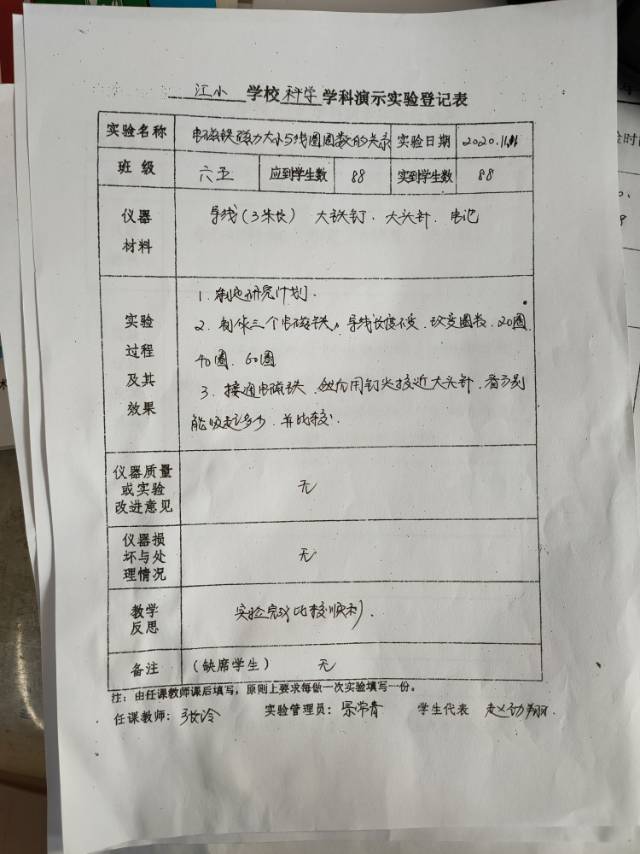 江小 学校 科学 学科演示实验登记表
实验名称 电磁铁磁力大小与线圈圈数的关系 实验日期 2020.11.
班级 六五 应到学生数 88 实到学生数 88
仪器 导线(3米长) 大铁钉、大头针、电池
材料
1. 制定研究计划.
实验 2. 制作三个电磁铁, 导线长度不变, 改变圈数, 20圈
过程 40圈、60圈
及其 3. 接通电磁铁, 钉尖接近大头针, 看分别
效果 能吸起多少, 并比较.
仪器质量
或实验 无
改进意见
仪器损
坏与处 无
理情况
教学 实验完成比较顺利.
反思
备注 (缺席学生) 无
注: 由任课教师课后填写, 原则上要求每做一次实验填写一份.
任课教师: 张冷 实验管理员: 常青 学生代表 赵 翔.